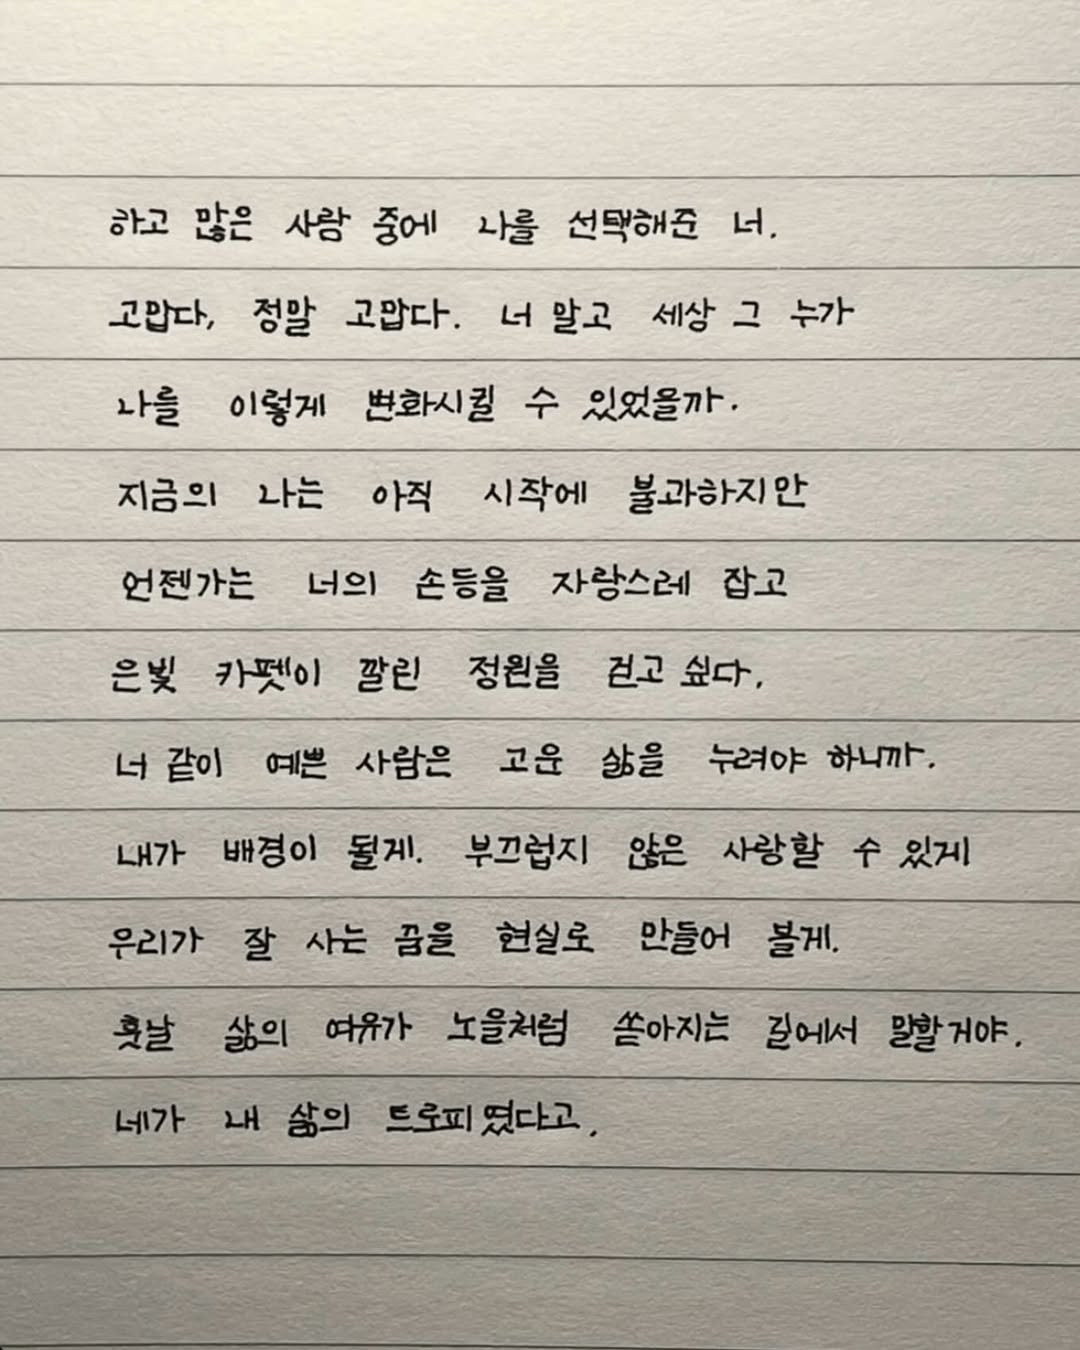 하고 많은 사람 중에 나를 선택해준 너.
고맙다, 정말 고맙다. 너 말고 세상 그 누가
나를 이렇게 변화시킬 수 있었을까.
지금의 나는 아직 시작에 불과하지만
언젠가는 너의 손등을 자랑스레 잡고
은빛 카펫이 깔린 정원을 걷고 싶다.
너 같이 예쁜 사람은 고운 삶을 누려야 하니까.
내가 배경이 될게. 부끄럽지 않은 사랑할 수 있게
우리가 잘 사는 꿈을 현실로 만들어 볼게.
훗날 삶의 여유가 노을처럼 쏟아지는 길에서 말할거야.
네가 내 삶의 트로피였다고.